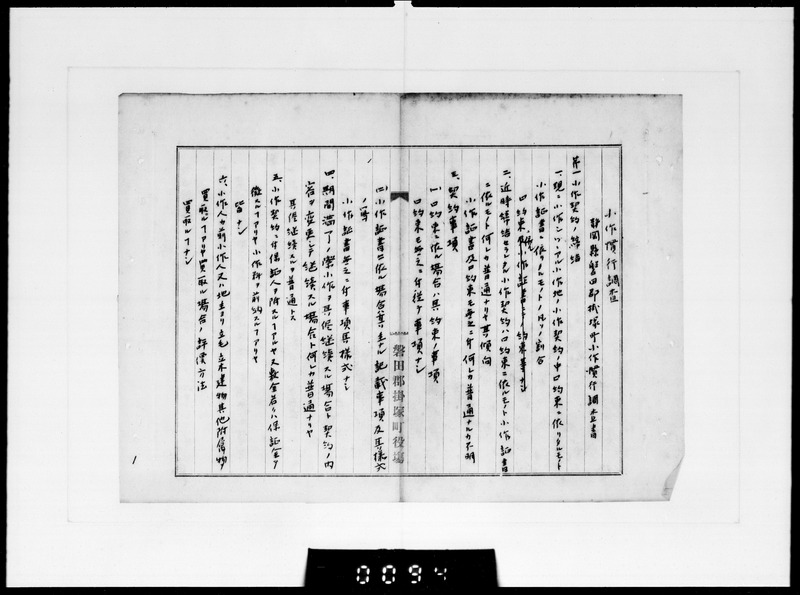 小作慣行調査
静岡県磐田郡掛塚町小作慣行調査書
第一小作契約ノ締結
一、現ニ小作シツヽアル小作地ノ小作契約ノ中口約束ニ依リタルモノト
小作証書ニ依リタルモノトノ凡ソノ割合
口約束 小作証書 約束 ナシ
二、近時締結セラレタル小作契約ハ口約束ニ依ルモノト小作証書
ニ依ルモノト何レカ普通ナリヤ其傾向
小作証書及口約束モ無之ニ付何レカ普通ナルカ不明
三、契約事項
(一)口約束ニ依ル場合ハ其約束ノ事項
口約束モ無之ニ付従テ事項ナシ
(二)小作証書ニ依ル場合其ノ主ナル記載事項及其様式
ノ写
小作証書無之ニ付事項其様式ナシ
四、期間満了ノ際小作ヲ其侭継続スル場合ト契約ノ内
容ヲ変更シテ継続スル場合ト何レカ普通ナリヤ
其侭継続スルヲ普通トス
五、小作契約ニ付保証人ヲ附スルアルヤ又敷金若クハ保証金ヲ
徴スルアリヤ小作料ヲ前納スルアリヤ
皆ナシ
六、小作人カ前小作人又ハ地主ヨリ立毛立木建物其他附属物ヲ
買取ルアリヤ買取ル場合ノ評価方法
買取ルナシ
磐田郡掛塚町役場
1
0094